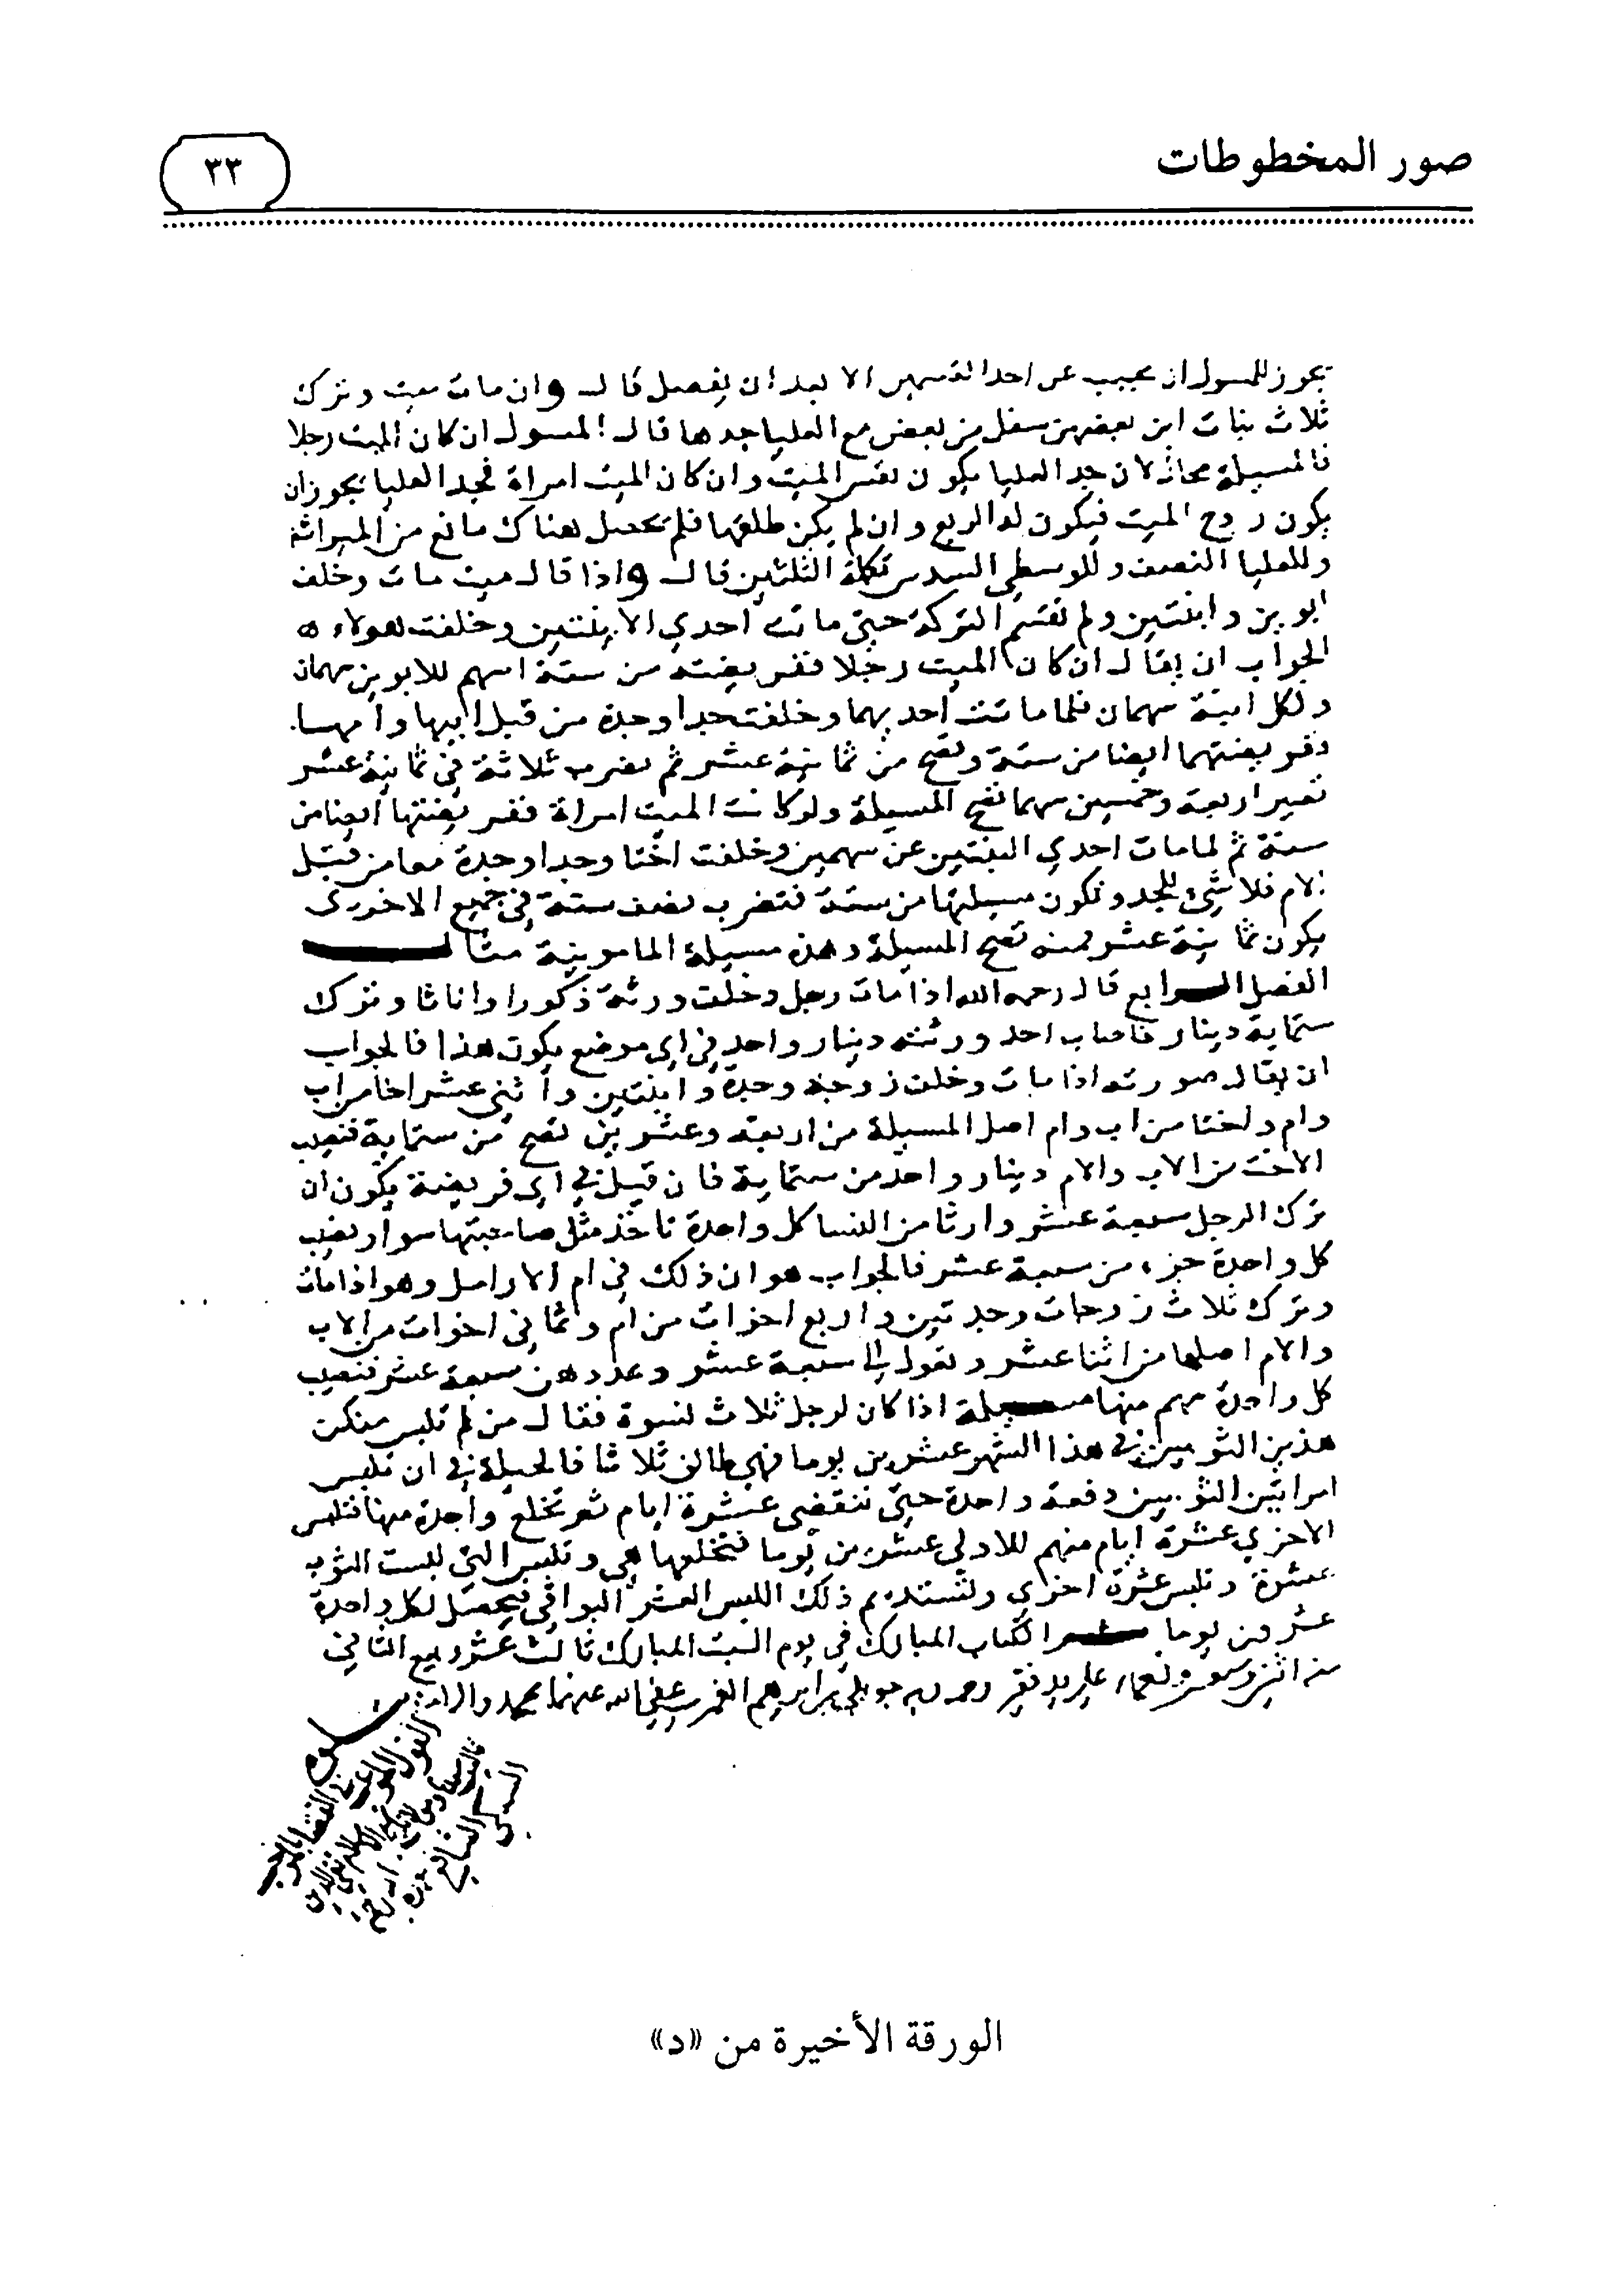 صور المخطوطات
٣٣
يجوز للمسول ان يجيب عن احد القسمين الا بعد ان يفصل قال وان مات ميت وترك
ثلاث بنات ابن بعضهن سفل من بعض مع العليا جدها قال المسول ان كان الميت رجلا
فالمسيلة محال لان جد العليا يكون نفس الميت وان كان الميت امراة فجد العليا يجوز ان
يكون زوج الميت فيكون له الربع وان لم يكن طلقها فلم يحصل هناك مانع من الميراث
وللعليا النصف وللوسطى السدس تكملة الثلثين قال واذا قال ميت مات وخلف
ابوين وابنتين ولم تقسم التركة حتى ماتت احدي الابنتين وخلفت هولاء ه
الجواب ان يقال ان كان الميت رجلا ففريضته من ستة اسهم للابوين سهمان
ولكل ابنة سهمان فلما ماتت احديهما وخلفت جدا وجدة من قبل ابيها وامهما
ففريضتهما ايضا من ستة وتصح من ثمانية عشر ثم تضرب ثلاثة في ثمانية عشر
تصير اربعة وخمسين سهما تصح المسيلة ولو كانت الميت امراة ففريضتها ايضا من
ستة ثم لما مات احدي البنتين عن سهمين وخلفت اختا وجدا وجدة معا من قبل
الام فلا شيء للجد وتكون مسيلتها من ستة فتضرب نصف ستة في جميع الاخورى
يكون ثمانية عشر فمنه تصح المسيلة وهذه مسيلة المامونية
الفصل الرابع قال رحمه الله اذا مات رجل وخلف ورثة ذكورا واناثا وترك
ستماية دينار فاصاب احد ورثته دينار واحد في اي موضع يكون هذا فالجواب
ان يقال صورته اذا مات وخلف زوجة وجدة وابنتين واثني عشر اخا من اب
وام واختا من اب وام اصل المسيلة من اربعة وعشرين تصح من ستماية فنصيب
الاخت من الاب والام دينار واحد من ستماية فان قيل في اي فريضة يكون ان
ترك الرجل سبعة عشر وارثا من النسا كل واحدة تاخذ مثل صاحبتها سوا ونصيب
كل واحدة جزء من سبعة عشر فالجواب هو ان ذلك في ام الارامل وهو اذا مات
وترك ثلاث زوجات وجدتين واربع اخوات من ام وثماني اخوات من الاب
والام اصلها من اثنا عشر وتعول الى سبعة عشر وعددهن سبعة عشر فنصيب
كل واحدة سهم منها مسيلة اذا كان لرجل ثلاث نسوة فقال من لم تلبس منكن
هذين الثوبين في هذا الشهر عشرين يوما فهي طالق ثلاثا فالحيلة في ان تلبس
امراتين الثوبين دفعة واحدة حتى تنقضي عشرة ايام ثم تخلع واحدة منها فتلبس
الاخري عشرة ايام منهم للاولى عشرين يوما فتخلعها هي وتلبس التي لبست الثوب
عشرة وتلبس عشرة اخرى وتستديم ذلك اللبس العشر البواقي فيحصل لكل واحدة
عشرين يوما الكتاب المبارك في يوم السبت المبارك ثالث عشر ربيع الثاني
ابراهيم عفي الله عنهما بمحمد واله
الورقة الأخيرة من «د»